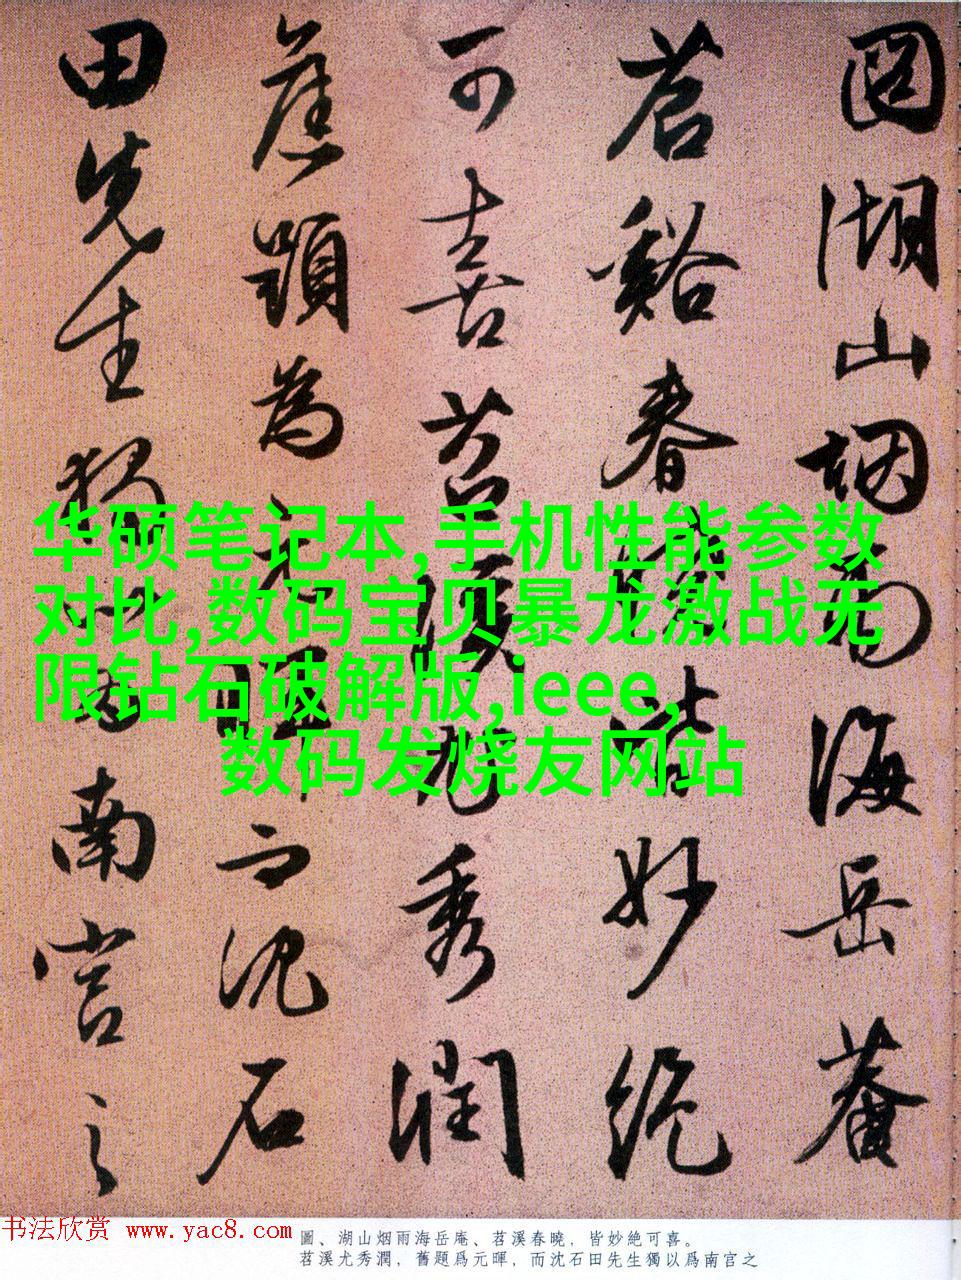 圖湖山烟雨海岳菴
苕谿春曉皆妙絶
可喜苕溪尤秀潤
舊題為元暉而沈石
田先生獨以為南宫之
华硕笔记本,手机性能参数
对比,数码宝贝暴龙激战无
限钻石破解版,ieee,
数码发烧友网站
书法欣赏 www.yac8.com
圖、湖山烟雨海岳庵、苕溪春曉，皆妙絶可喜。
苕溪尤秀潤，舊題爲元暉，而沈石田先生獨以爲南宫之